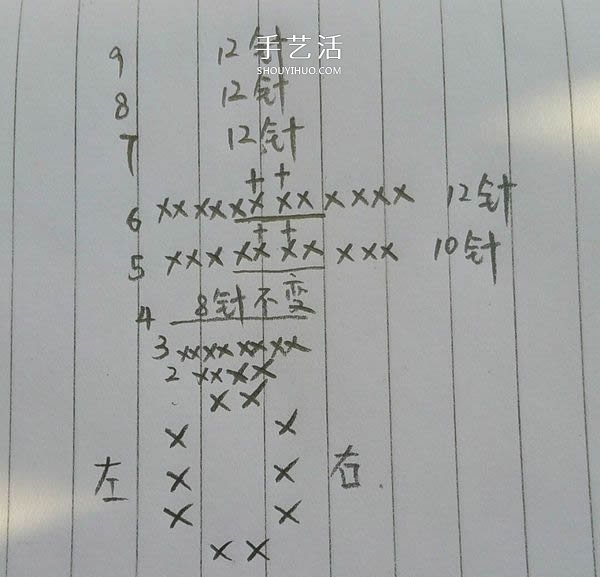 手艺活
SHOUYIHUO.COM
9 12针
8 12针
7 12针
++
6 ×× ×××× ×× ×××× 12针
++
5 ××× ×× ×× ××× 10针
4 8针不变
3 ×××× ×× ××
2 ××××
××
× ×
左 × × 右.
× ×
××